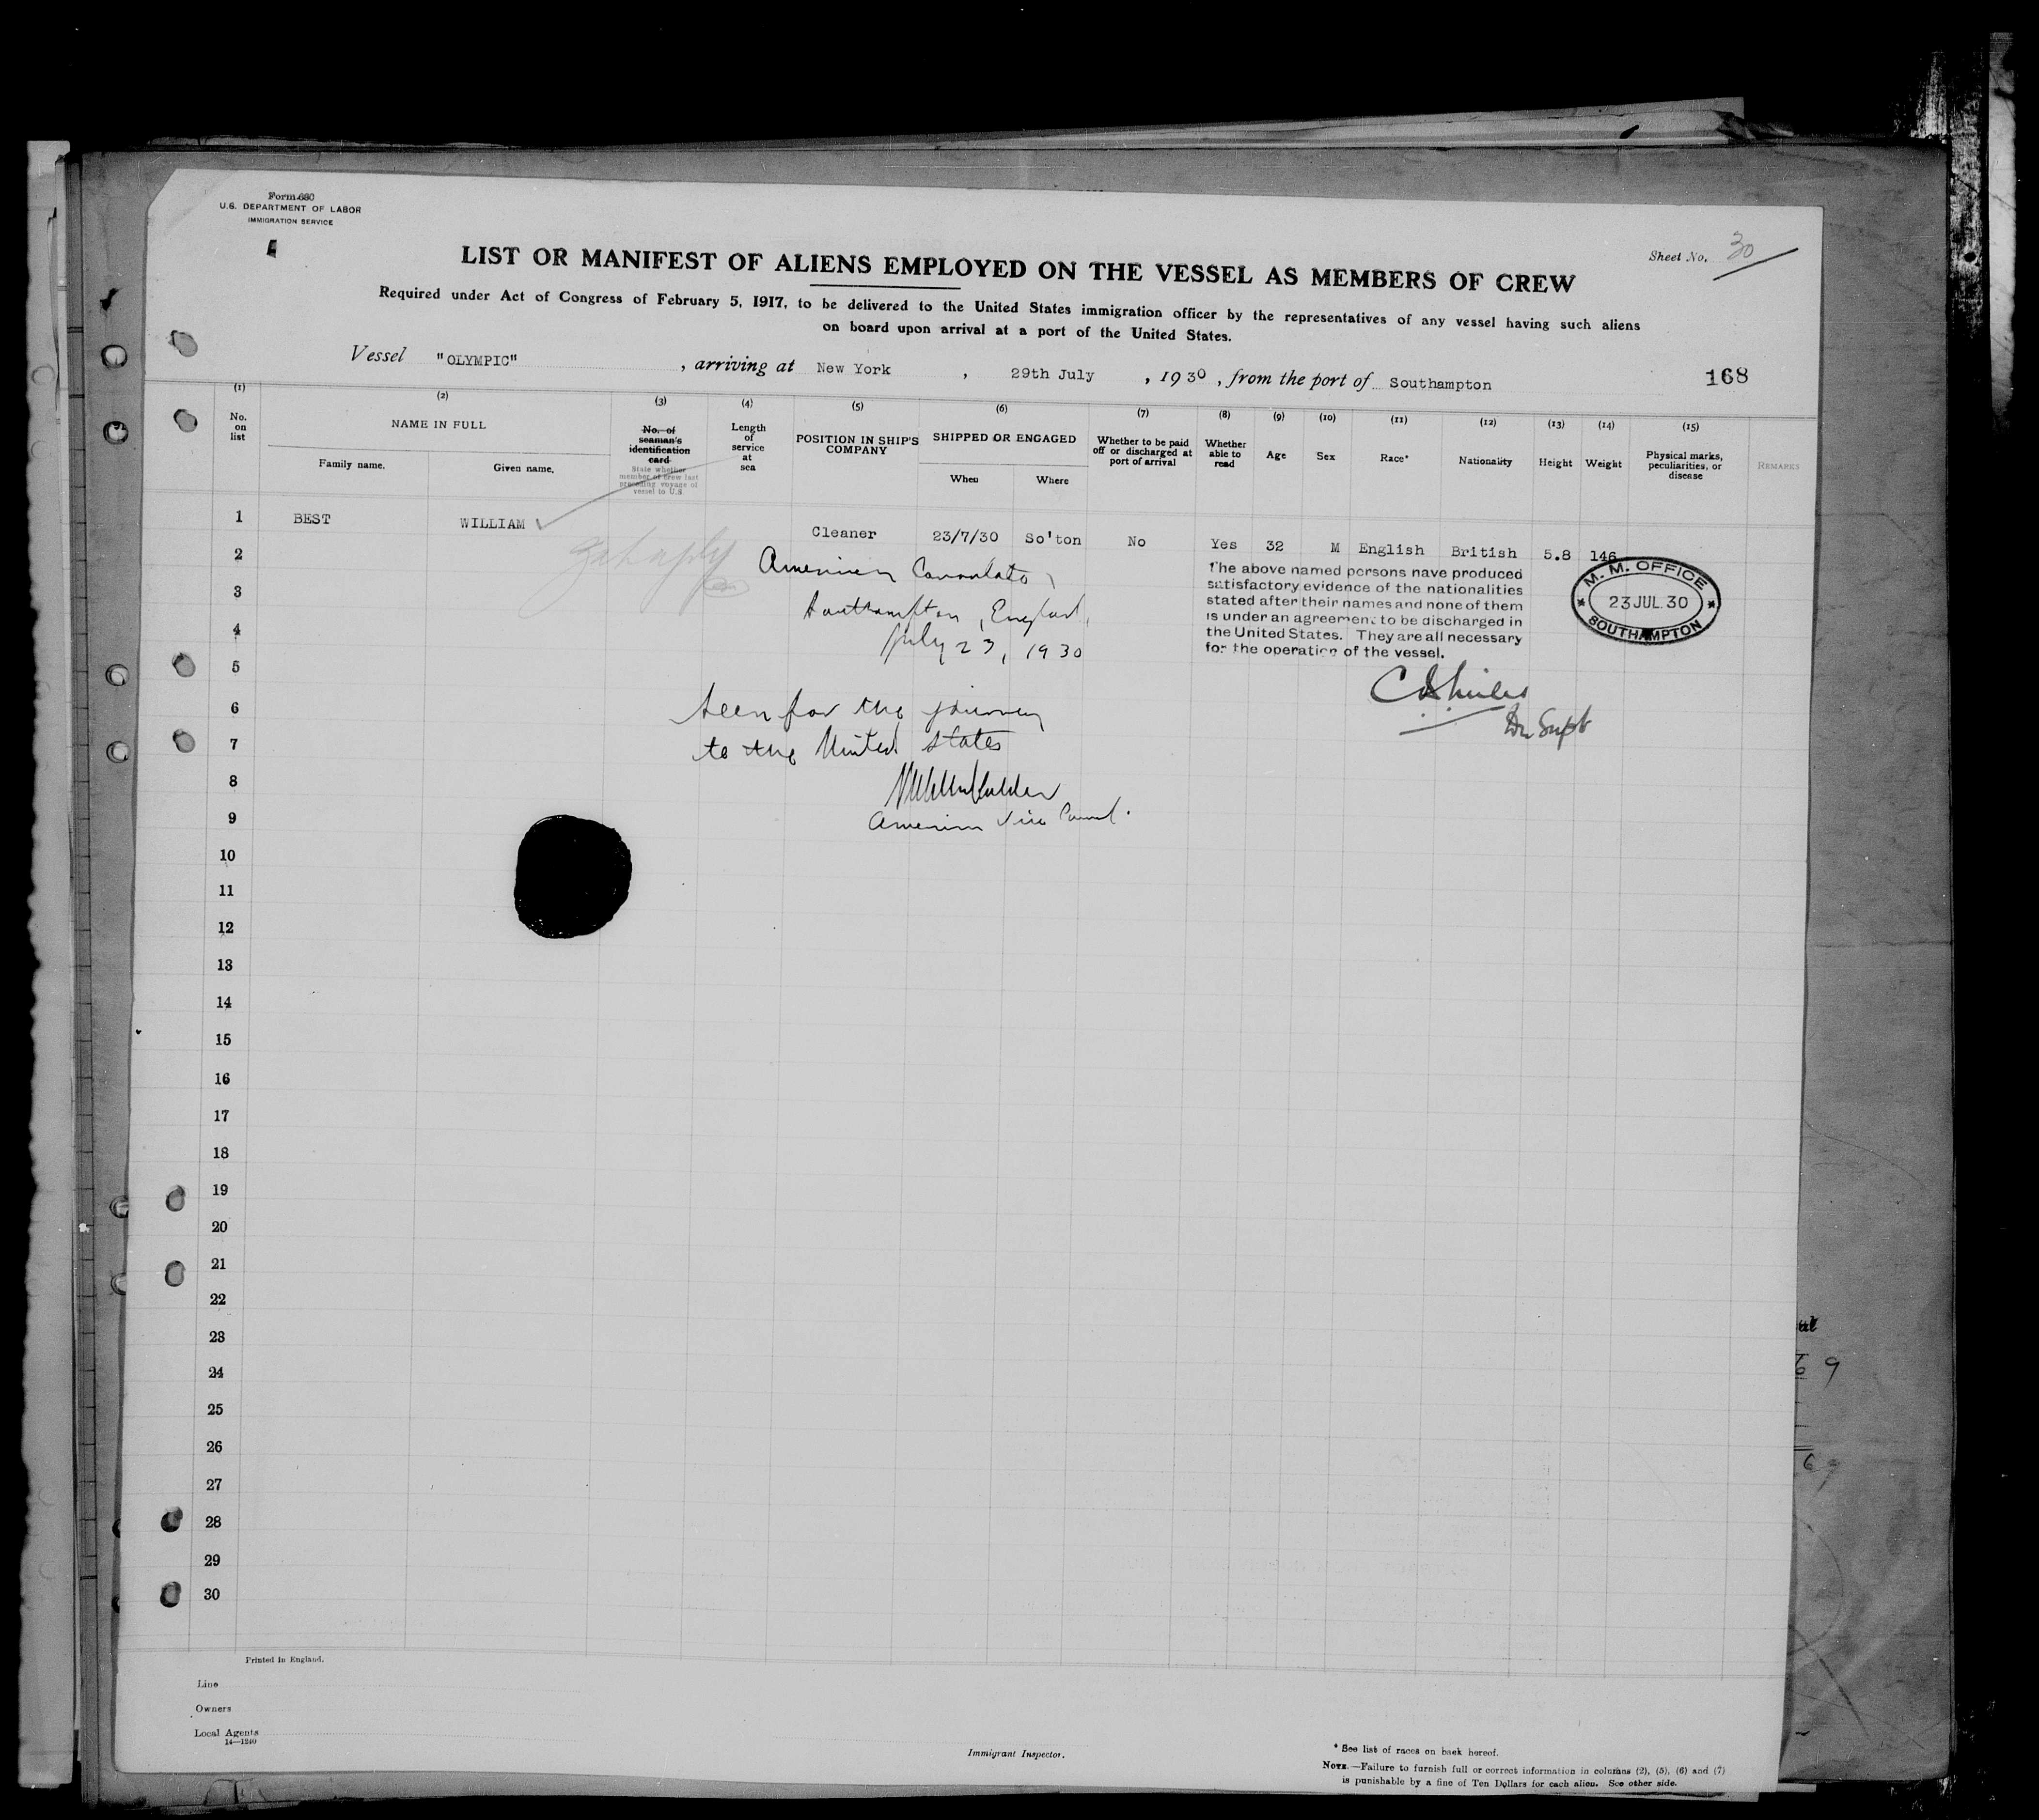 Form 680
U.S. DEPARTMENT OF LABOR
IMMIGRATION SERVICE
Sheet No. 30
LIST OR MANIFEST OF ALIENS EMPLOYED ON THE VESSEL AS MEMBERS OF CREW
Required under Act of Congress of February 5, 1917, to be delivered to the United States immigration officer by the representatives of any vessel having such aliens
on board upon arrival at a port of the United States.
Vessel "OLYMPIC", arriving at New York, 29th July, 1930, from the port of Southampton
168
(1) (2) (3) (4) (5) (6) (7) (8) (9) (10) (11) (12) (13) (14) (15)
No. on list
NAME IN FULL
Family name. Given name.
No. of seaman's identification card
State whether member of crew last preceding voyage of vessel to U.S.
Length of service at sea
POSITION IN SHIP'S COMPANY
SHIPPED OR ENGAGED
When Where
Whether to be paid off or discharged at port of arrival
Whether able to read
Age
Sex
Race*
Nationality
Height
Weight
Physical marks, peculiarities, or disease
REMARKS
1 BEST WILLIAM Cleaner 23/7/30 So'ton No Yes 32 M English British 5.8 146
American Consulate,
Southampton, England,
July 23, 1930
Seen for the journey
to the United States
American Vice Consul.
The above named persons have produced
satisfactory evidence of the nationalities
stated after their names and none of them
is under an agreement to be discharged in
the United States. They are all necessary
for the operation of the vessel.
M. M. OFFICE
23 JUL. 30
SOUTHAMPTON
2
3
4
5
6
7
8
9
10
11
12
13
14
15
16
17
18
19
20
21
22
23
24
25
26
27
28
29
30
Printed in England.
Line
Owners
Local Agents
14—1240
Immigrant Inspector.
* See list of races on back hereof.
NOTE.—Failure to furnish full or correct information in columns (2), (5), (6) and (7)
is punishable by a fine of Ten Dollars for each alien. See other side.